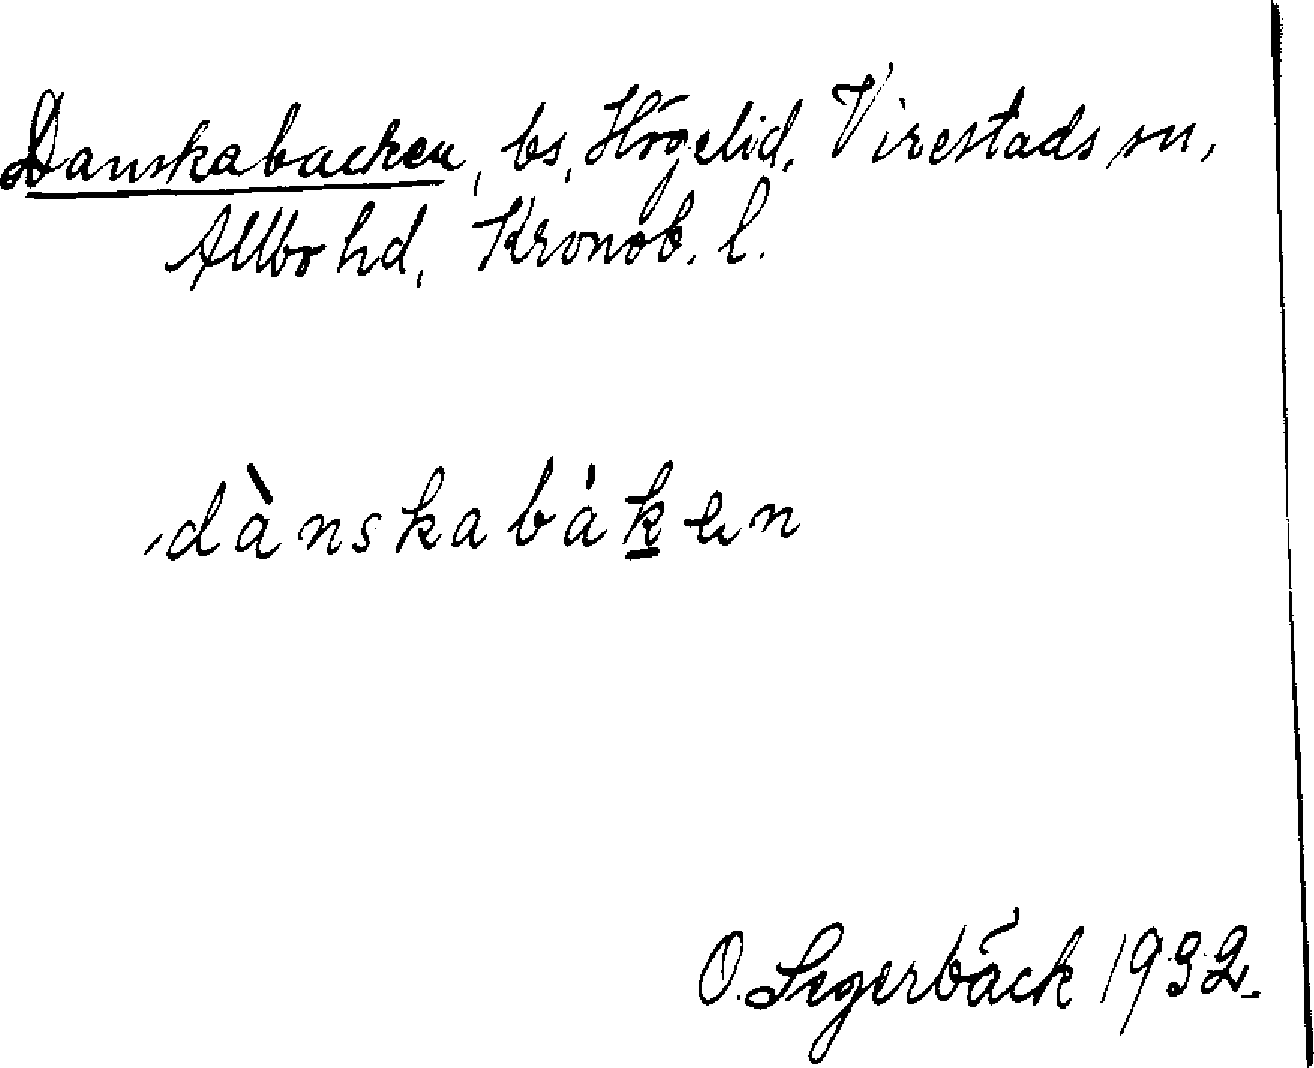 Danskabacken, bs, Högelid, Virestads sn,
Allbo hd, Kronob. l.
dànskabàken
O. Segerbäck 1932.